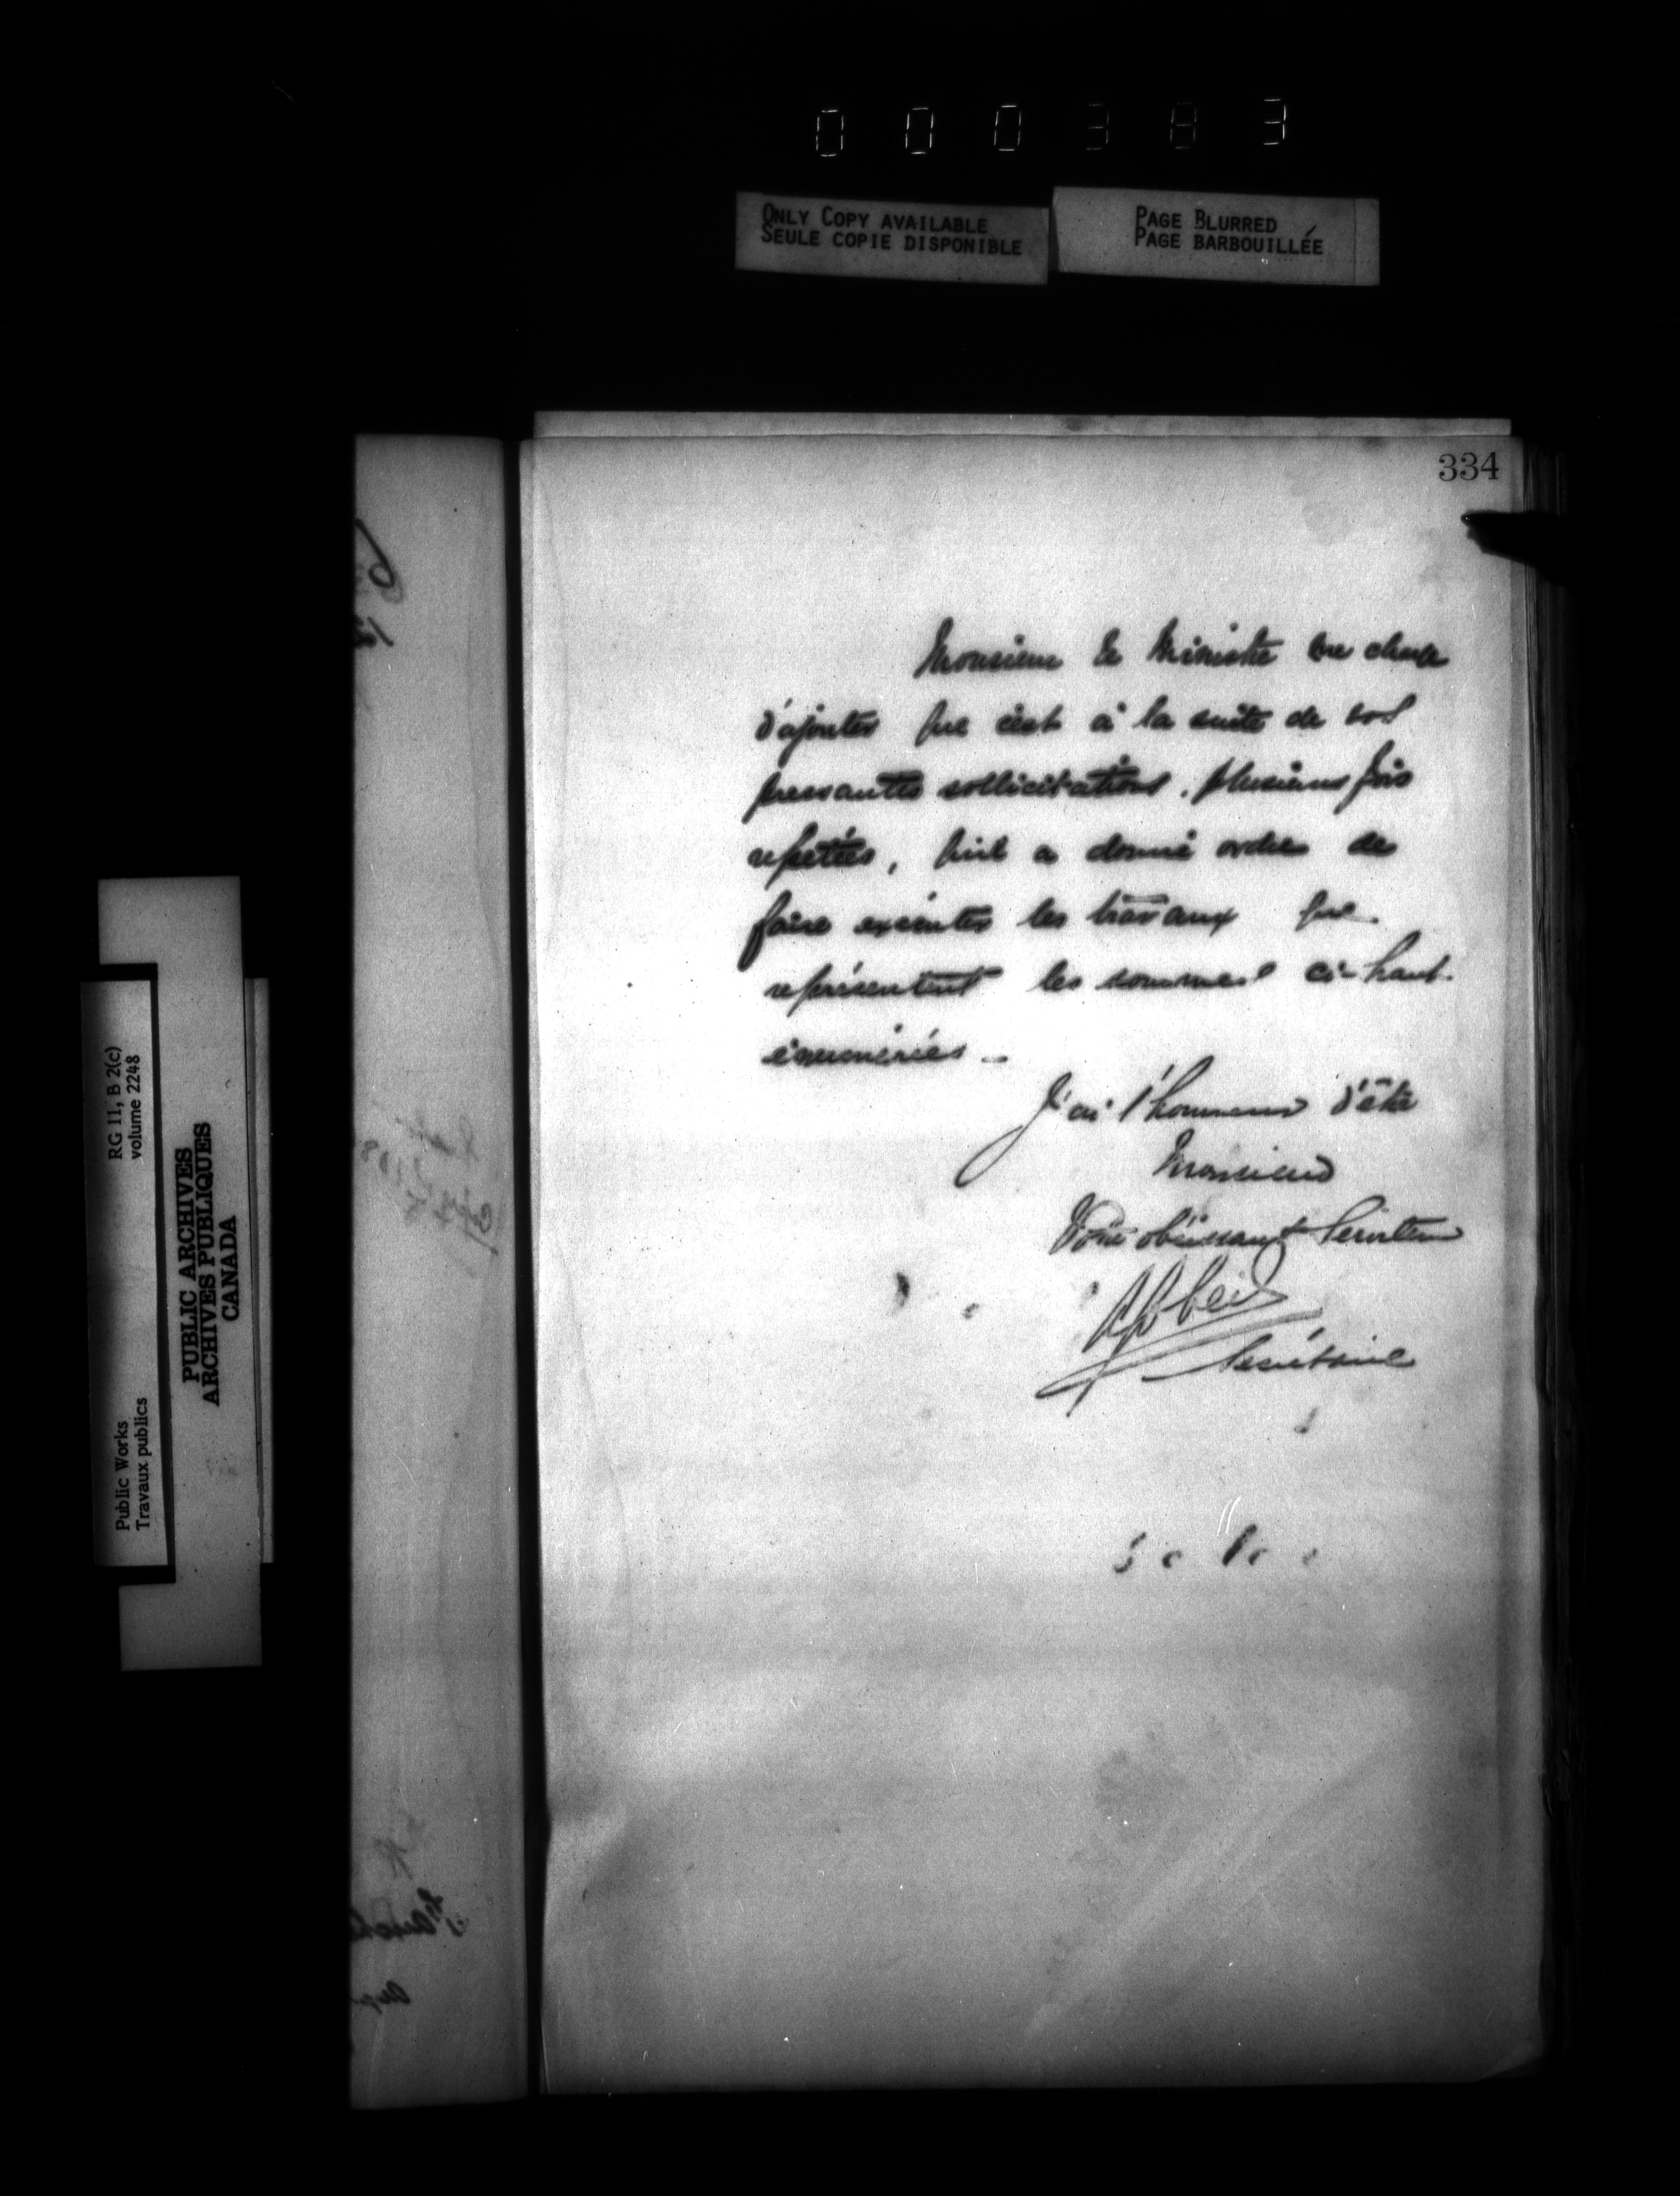 000383
ONLY COPY AVAILABLE
SEULE COPIE DISPONIBLE
PAGE BLURRED
PAGE BARBOUILLÉE
334
Monsieur le Ministre me charge
d'ajouter que c'est à la suite de vos
pressantes sollicitations, plusieurs fois
répétées, qu'il a donné ordre de
faire exécuter les travaux que
représentent les sommes ci-haut
énumérées _
J'ai l'honneur d'être
Monsieur
Votre obéissant Serviteur
Secrétaire
RG 11, B 2(c)
volume 2248
Public Works
Travaux publics
PUBLIC ARCHIVES
ARCHIVES PUBLIQUES
CANADA